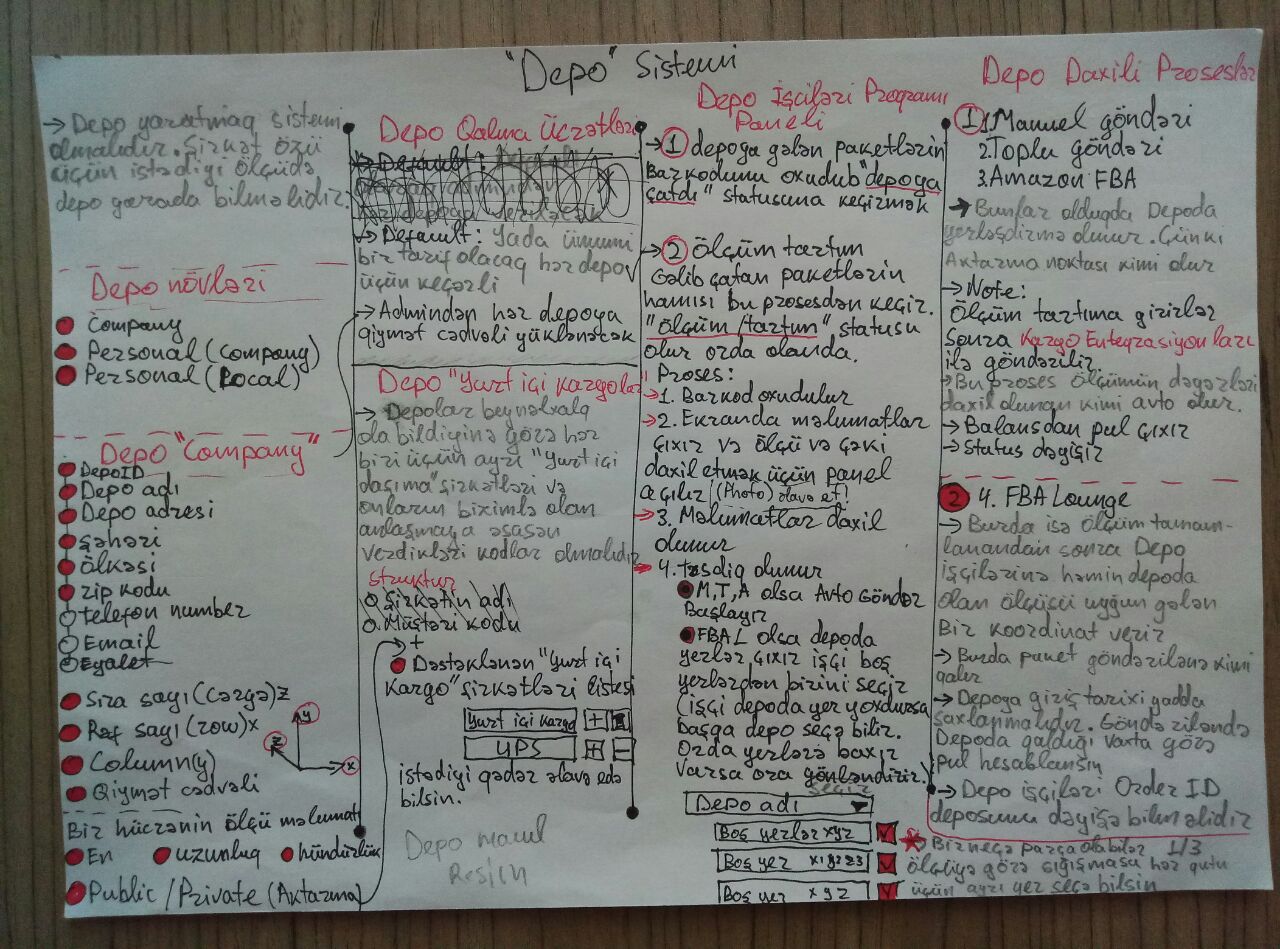 "Depo" Sistemi
→ Depo yaratmaq sistemi
olmalıdır. Şirkət özü
üçün istədiyi ölçüdə
depo yarada bilməlidir.
Depo növləri
Company
Personal (Company)
Personal (Local)
Depo "Company"
DepoID
Depo adı
Depo adresi
Şəhəri
ölkəsi
zip kodu
telefon number
Email
Eyalet
Sıra sayı (Cərgə) z
Rəf sayı (row) x
Column (y)
Qiymət cədvəli
y
z
x
Bir hücrənin ölçü məlumatı
En uzunluq hündürlük
Public / Private (Aktarma)
Depo Qalma Ücrətləri
→ Default:
→ Default: Yada ümumi
bir tarif olacaq hər depo
üçün keçərli
→ Admindən hər depoya
qiymət cədvəli yüklənəcək
Depo "Yurt içi kargoları"
→ Depolar beynəlxalq
ola bildiyinə görə hər
biri üçün ayrı "Yurt içi
daşıma" şirkətləri və
onların bizimlə olan
anlaşmaya əsasən
verdikləri kodlar olmalıdır
Struktur
Şirkətin adı
Müştəri kodu
+
Dəstəklənən "Yurt içi
kargo" şirkətləri listesi
Yurt içi kargo +
UPS + -
istədiyi qədər əlavə edə
bilsin.
Depo
Depo İşçiləri Programı
Paneli
→ 1 depoya gələn paketlərin
Barkodunu oxudub "depoya
çatdı" statusuna keçirmək
→ 2 ölçüm tartım
Gəlib çatan paketlərin
hamısı bu prosesdən keçir.
"ölçüm/tartım" statusu
olur orda olanda.
Proses:
→ 1. Barkod oxudulur
→ 2. Ekranda məlumatlar
çıxır və ölçü və çəki
daxil etmək üçün panel
açılır (Photo) əlavə et!
→ 3. Məlumatlar daxil
olunur
→ 4. təsdiq olunur
M,T,A olsa Avto Göndər
Başlayır
FBAL olsa depoda
yerlər çıxır işçi boş
yerlərdən birini seçir
(işçi depoda yer yoxdursa
başqa depo seçə bilir.
Orda yerlərə baxır
Varsa ora yönləndirir.)
seçir
Depo adı
Boş yerlər xyz
Boş yer x1y2z3
Boş yer xyz
Depo Daxili Proseslər
1 1. Manuel göndəri
2. Toplu göndəri
3. Amazon FBA
→ Bunlar olduqda Depoda
yerləşdirmə olunur. Çünki
Aktarma noktası kimi olur
→ Note:
Ölçüm tartıma girirlər
Sonra Kargo Enteqrasiyonları
ilə göndərilir
→ Bu proses ölçümün dəyərləri
daxil olunan kimi avto olur.
→ Balansdan pul çıxır
→ Status dəyişir
2 4. FBA Lounge
→ Burda isə ölçüm tamam-
lanandan sonra Depo
işçilərinə həmin depoda
olan ölçüsü uyğun gələn
Bir koordinat verir
→ Burda paket göndərilənə kimi
qalır
→ Depoya giriş tarixi yadda
saxlanmalıdır. Göndəriləndə
Depoda qaldığı vaxta görə
pul hesablansın
→ Depo işçiləri Order ID
deposunu dəyişə bilməlidir
Bir neçə parça ola bilər 1/3
ölçüyə görə sığışmasa hər qutu
üçün ayrı yer seçə bilsin